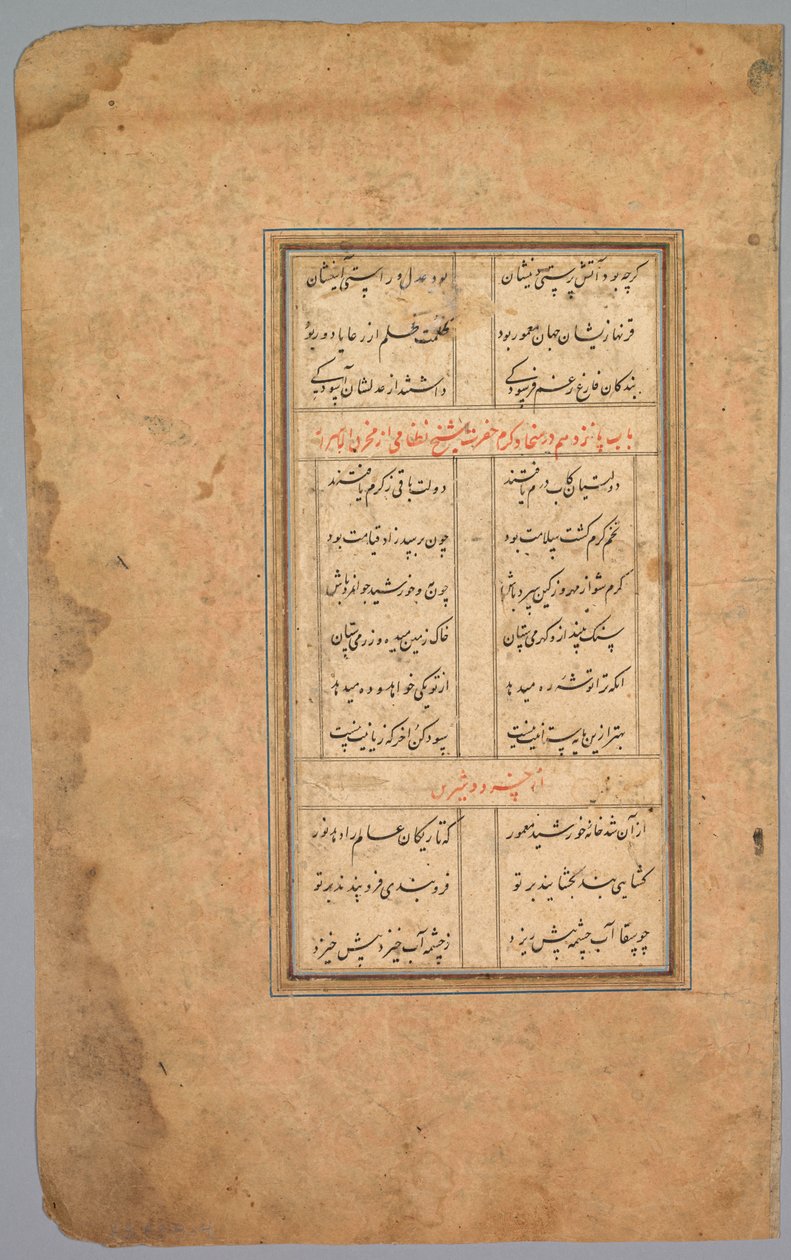 گرچه بود آتش پرستی دینشان بود عدل و راستی آیینشان
قرنها زیشان جهان معمور بود ظلمت ظلم از رعایا دور بود
بندگان فارغ ز غم فرسودگی داشتند از عدلشان آسودگی
باب پانزدهم در سخا و کرم حضرت شیخ نظامی از مخزن الاسرار
دولتیان کاب و درم یافتند دولت باقی ز کرم یافتند
تخم کرم کشت سلامت بود چون برسد زاد قیامت بود
گرم شو از مهر و ز کین سرد باش چون مه و خورشید جوانمرد باش
سنک بینداز و گهر می‌ستان خاک زمین میده و زر می‌ستان
آنکه ترا توشه ره میدهد از تو یکی خواهد و ده میدهد
بهتر ازین مایه ستانیت نیست سود کن آخر که زیانیت نیست
از خسرو و شیرین
از آن شد خانه خورشید معمور که تاریکان عالم را دهد نور
گشایی بند بگشایند بر تو فروبندی فروبندند بر تو
چو سقا آب چشمه پیش ریزد ز چشمه آب خیزد پیش خیزد